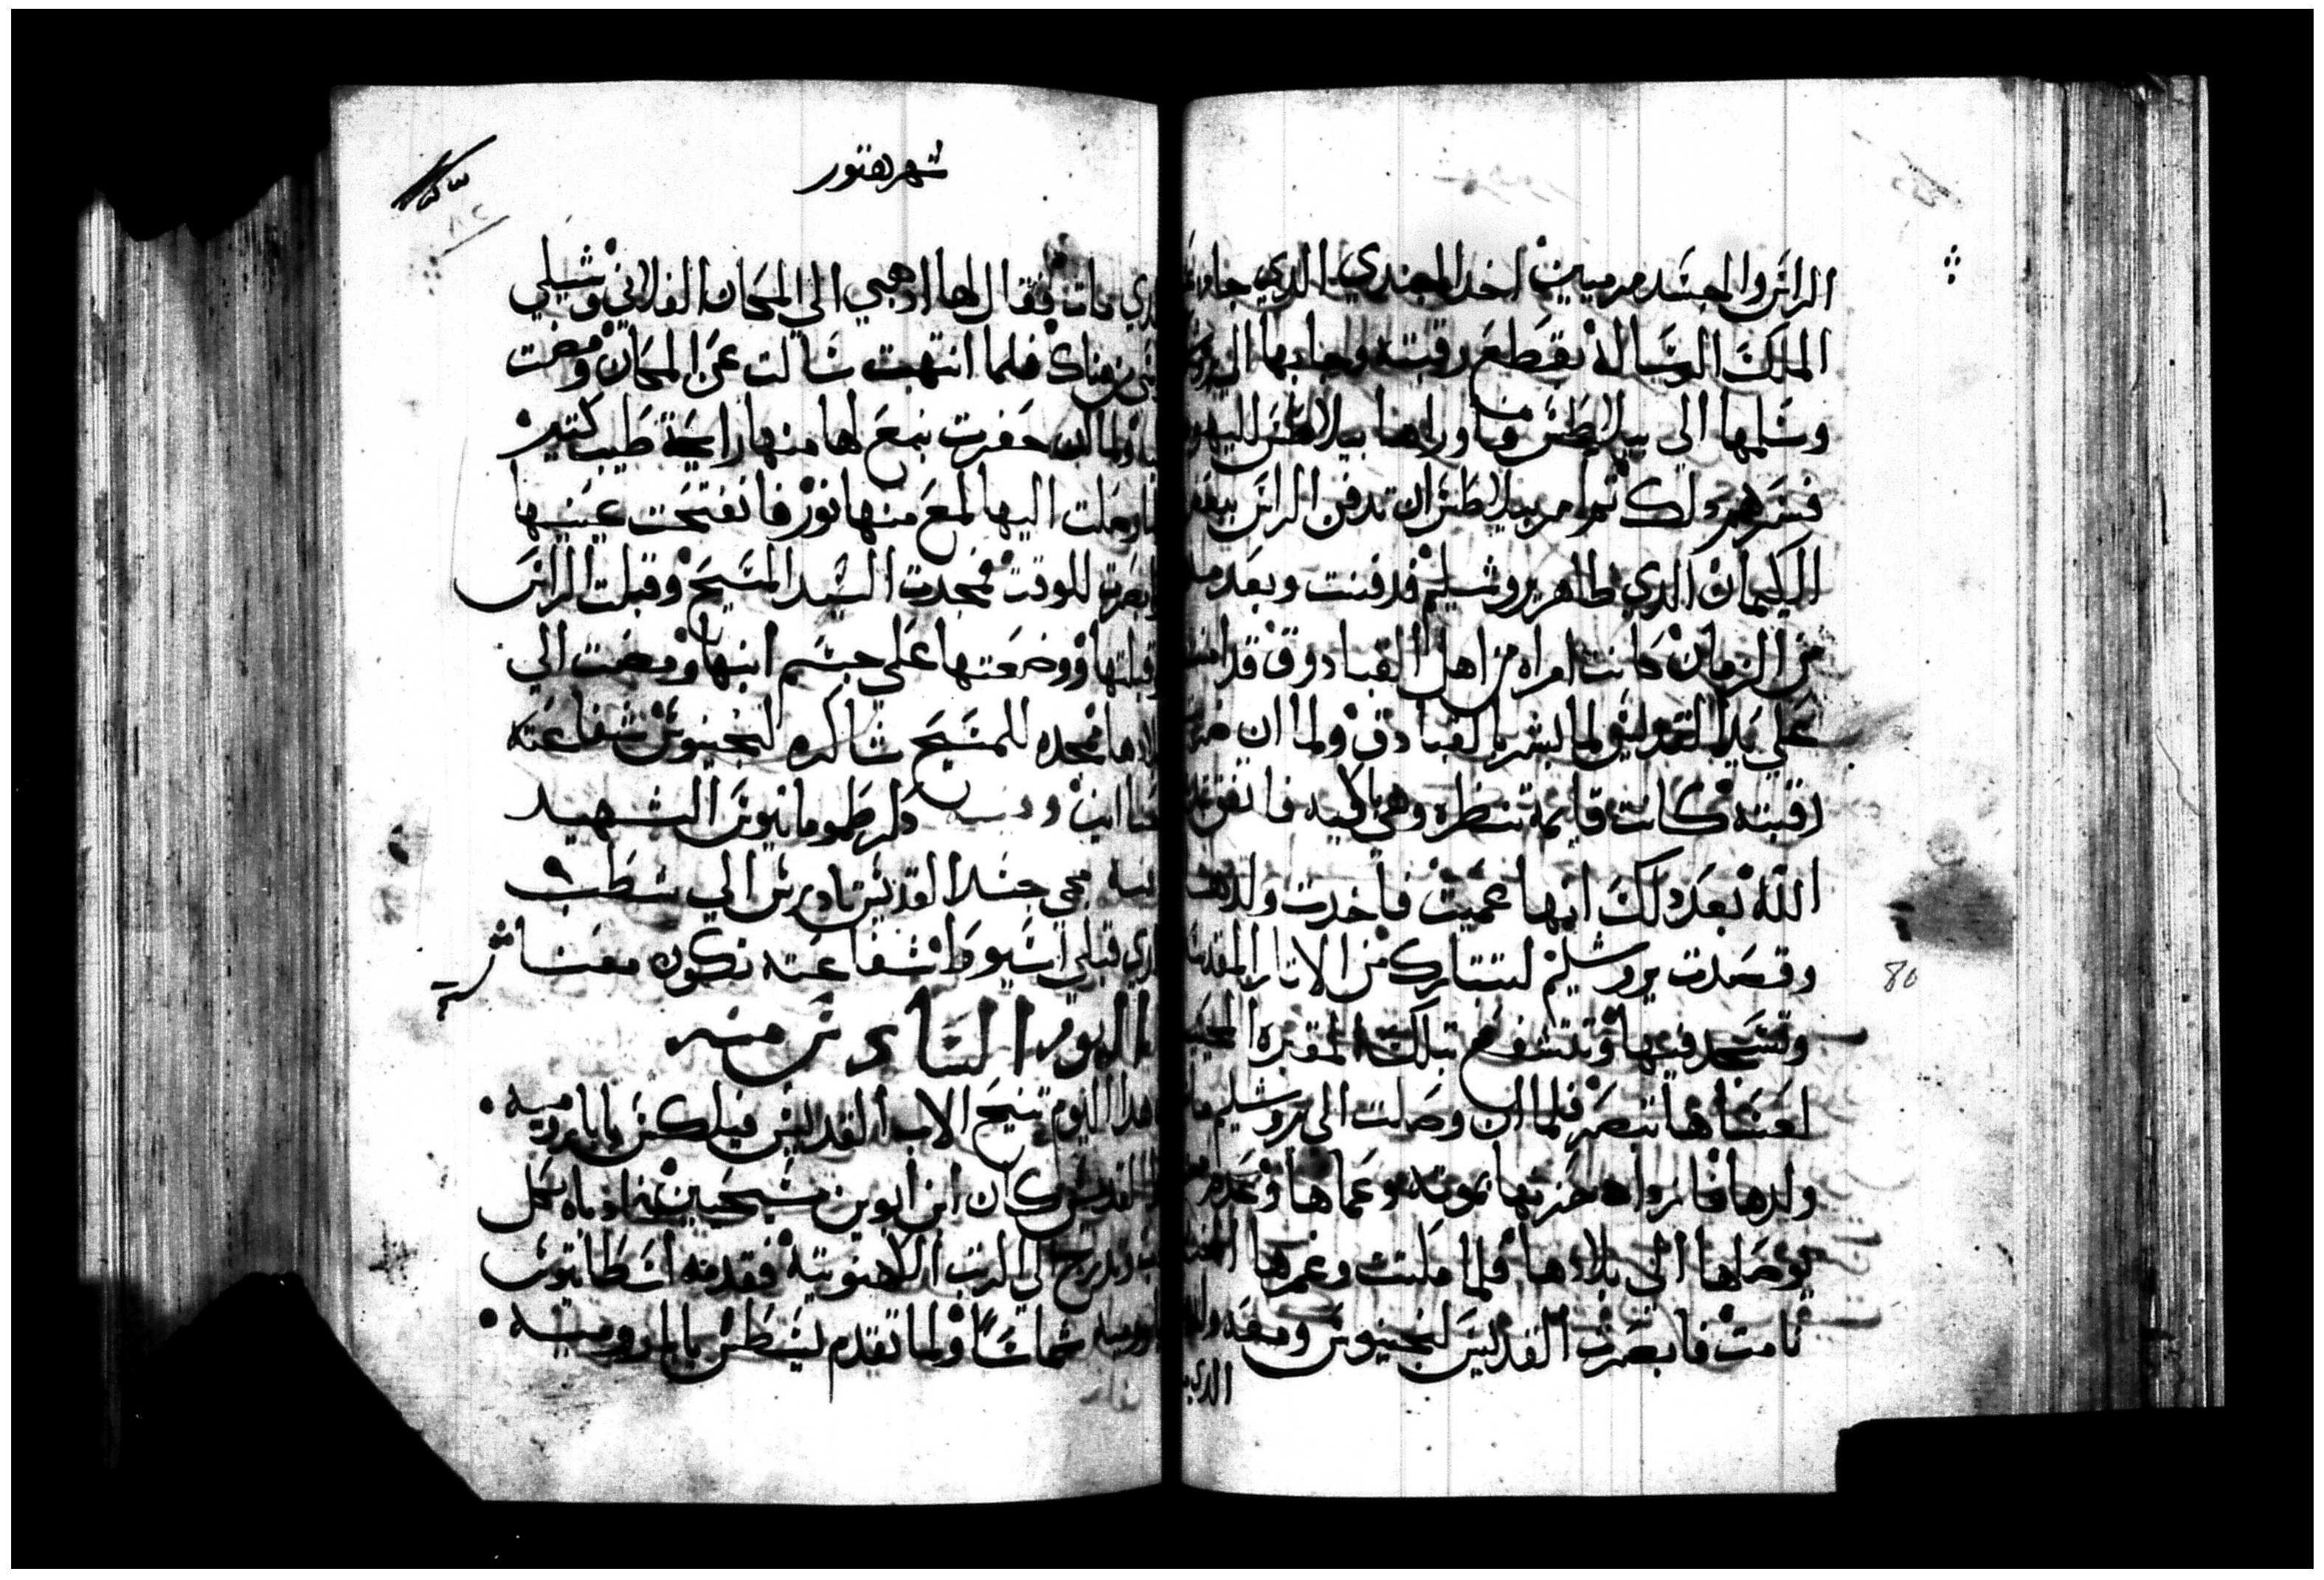 الراس والجسد مرميين اخد الجندي الذي جا من عند
الملك الرساله بقطع رقبته وجابها الى
وسلمها الى بيلاطس وهو اوراها بيلاطس لليهود
فسرهم دلك ثم امر بيلاطس ان تدفن الراس بعد
الكيمان الذي ظاهر يروشليم فدفنت وبعد مده
من الزمان كانت امراه من اهل القبادوق قد امنت
على يد القديس لما بشر بالقبادق ولما ان ضربت
رقبته كانت قايمة تنظره وهي باكيه فاتفق
الله بعد دلك انها عميت فاخدت ولدها
وقصدت يروشليم لتتبارك من الاتار المقدسه
وتسجد فيها وتتشفع بتلك المقبره المحييه
لعساها تبصر فلما ان وصلت الى يروشليم مات
ولدها فازداد حزنها بموته وعماها وعدم من
يوصلها الى بلادها فلما صلت وغمرها
نامت فابصرت القديس لنجينوس ومعه ولدها
الذي
80
شهر هتور
الذي مات فقال لها ادهبي الي المكان الفلاني وشيلي
راسي من هناك فلما انتبهت سالت عن المكان ومضت
ولما ان حفرت نبع لها منها رايحة طيب كتير
وصلت اليها لمع منها نور فانفتحت عينيها
وابصرت للوقت فمجدت السيد المسيح وقبلت الراس
وقبلتها ووضعتها علي جسم ابنها ومضت الي
بلادها ممجده للمسيح شاكره لنجينوس شفاعته
معنا امين دكر طوماتيوس الشهيد
مجي جسد القديس تادرس الي شطب
الذي قبلي اسيوط شفاعته تكون معنا
اليوم السادس منه
هدا اليوم تنيح الاب القديس فيلكس بابا روميه
القديس كان ابن ابوين مسيحيين فادباه بكل
وتدرج الي الرتب الكهنوتية فقدمه اسطاتيوس
روميه شماسا ولما تقدم يسطس بابا روميه